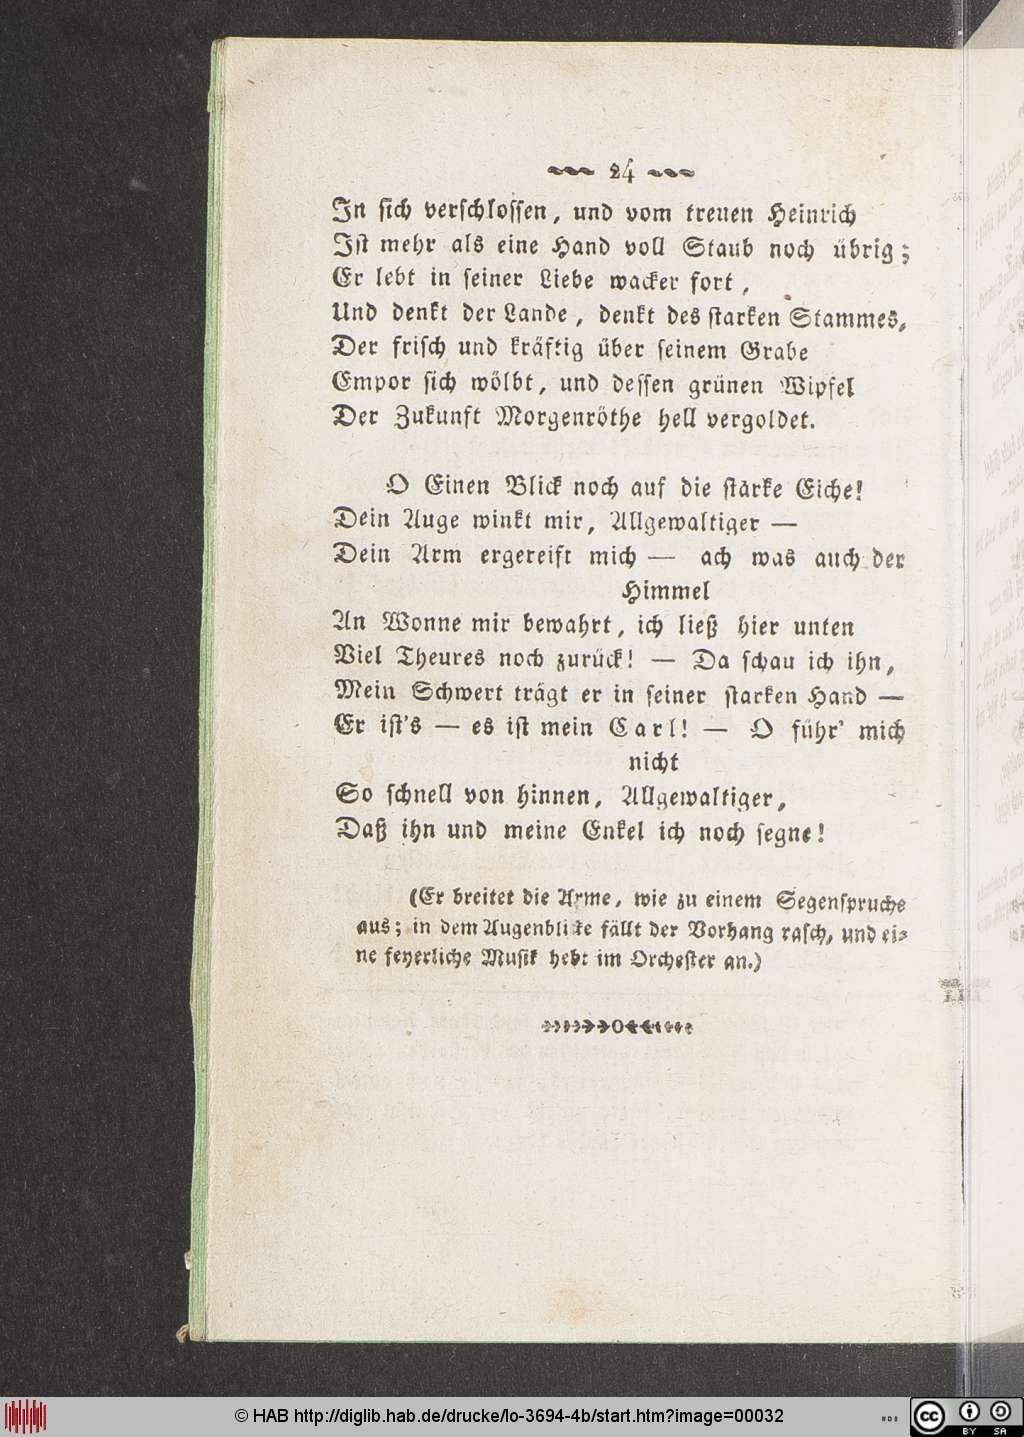 24
In sich verschlossen, und vom treuen Heinrich
Ist mehr als eine Hand voll Staub noch übrig;
Er lebt in seiner Liebe wacker fort,
Und denkt der Lande, denkt des starken Stammes,
Der frisch und kräftig über seinem Grabe
Empor sich wölbt, und dessen grünen Wipfel
Der Zukunft Morgenröthe hell vergoldet.
O Einen Blick noch auf die starke Eiche!
Dein Auge winkt mir, Allgewaltiger —
Dein Arm ergereift mich — ach was auch der
Himmel
An Wonne mir bewahrt, ich ließ hier unten
Viel Theures noch zurück! — Da schau ich ihn,
Mein Schwert trägt er in seiner starken Hand —
Er ist's — es ist mein Carl! — O führ' mich
nicht
So schnell von hinnen, Allgewaltiger,
Daß ihn und meine Enkel ich noch segne!
(Er breitet die Arme, wie zu einem Segenspruche
aus; in dem Augenblicke fällt der Vorhang rasch, und ei-
ne feyerliche Musik hebt im Orchester an.)
© HAB http://diglib.hab.de/drucke/lo-3694-4b/start.htm?image=00032
CC BY SA